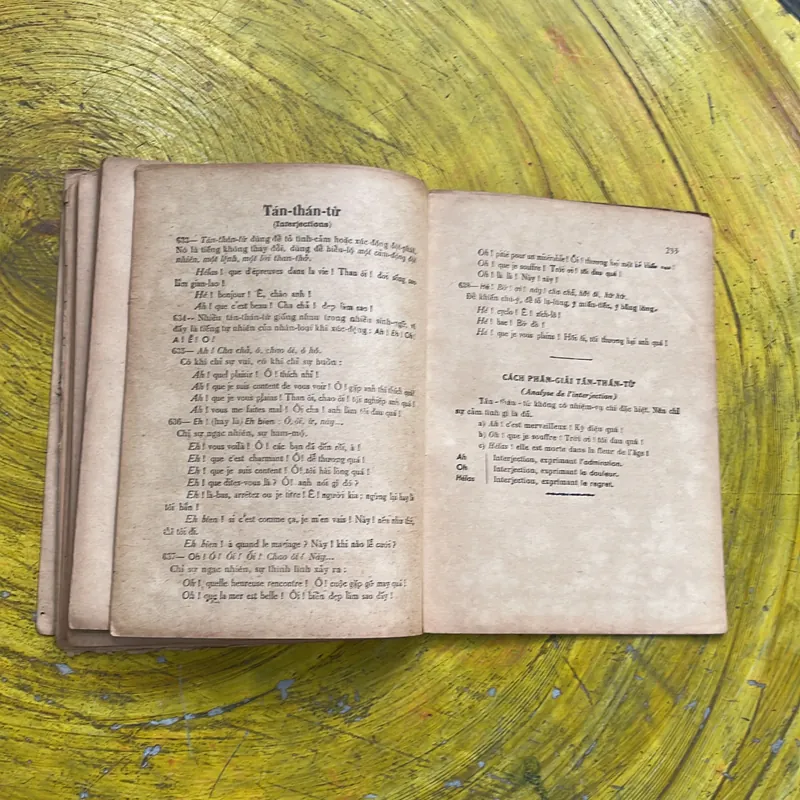 Tán-thán-từ
(Interjections)
633— Tán-thán-từ dùng để tỏ tình-cảm hoặc xúc-động đột-phát.
Nó là tiếng không thay đổi, dùng để biểu-lộ một cảm-động đột
nhiên, một lệnh, một lời than-thở.
Hélas ! que d'épreuves dans la vie ! Than ôi ! đời sống sao
lắm gian-lao !
Hé ! bonjour ! Ê, chào anh !
Ah ! que c'est beau ! Cha chả ! đẹp làm sao !
634— Nhiều tán-thán-từ giống nhau trong nhiều sinh-ngữ, vì
đấy là tiếng tự nhiên của nhân-loại khi xúc-động : Ah ! Eh ! Oh!
A ! Ê ! O !
635— Ah ! Cha chả, ô, chao ôi, ô hô.
Có khi chỉ sự vui, có khi chỉ sự buồn :
Ah ! quel plaisir ! Ô ! thích nhỉ !
Ah ! que je suis content de vous voir ! Ô ! gặp anh thì thích quá!
Ah ! que je vous plains ! Than ôi, chao ôi ! tội nghiệp anh quá !
Ah ! vous me faites mal ! Ối cha ! anh làm tôi đau quá !
636— Eh ! (hay là) Eh bien : Ô, ôi, ừ, này...
Chỉ sự ngạc nhiên, sự ham-mộ.
Eh ! vous voilà ! Ô ! các bạn đã đến rồi, à !
Eh ! que c'est charmant ! Ô! dễ thương quá !
Eh ! que je suis content ! Ô! tôi hài lòng quá !
Eh ! que dites-vous là ? Ô! anh nói gì đó ?
Eh ! là-bas, arrêtez ou je tire ! Ê ! người kia ; ngừng lại hay là
tôi bắn !
Eh bien ! si c'est comme ça, je m'en vais ! Này ! nếu như thế,
tôi đi.
Eh bien ! à quand le mariage ? Này ! khi nào lễ cưới ?
637— Oh ! Ô ! Ôi ! Ối ! Chao ôi ! Này...
Chỉ sự ngạc nhiên, sự thình lình xảy ra :
Oh ! quelle heureuse rencontre ! Ô ! cuộc gặp gỡ may quá !
Oh ! que la mer est belle ! Ôi ! biển đẹp làm sao đấy !
255
Oh ! pitié pour un misérable ! Ôi ! thương hại một kẻ khốn nạn !
Oh ! que je souffre ! Trời ơi ! tôi đau quá !
Oh ! là là ! Này ! này !
638— Hé ! Bớ ! ơi ! này ! cha chả, hỡi ôi, hừ hừ.
Để khiến chú-ý, để tỏ la-lòng, ý miễn-tiếc, ý bằng lòng.
Hé ! cyclo ! Ê ! xích-lô !
Hé ! bac ! Bớ đò !
Hé ! que je vous plains ! Hỡi ôi, tôi thương hại anh quá !
CÁCH PHÂN-GIẢI TÁN-THÁN-TỪ
(Analyse de l'interjection)
Tán-thán-từ không có nhiệm-vụ chi đặc biệt. Nên chỉ
sự cảm tình gì là đủ.
a) Ah ! c'est merveilleux ! Kỳ diệu quá !
b) Oh ! que je souffre ! Trời ơi ! tôi đau quá !
c) Hélas ! elle est morte dans la fleur de l'âge !
Ah Interjection, exprimant l'admiration.
Oh Interjection, exprimant la douleur.
Hélas Interjection, exprimant le regret.